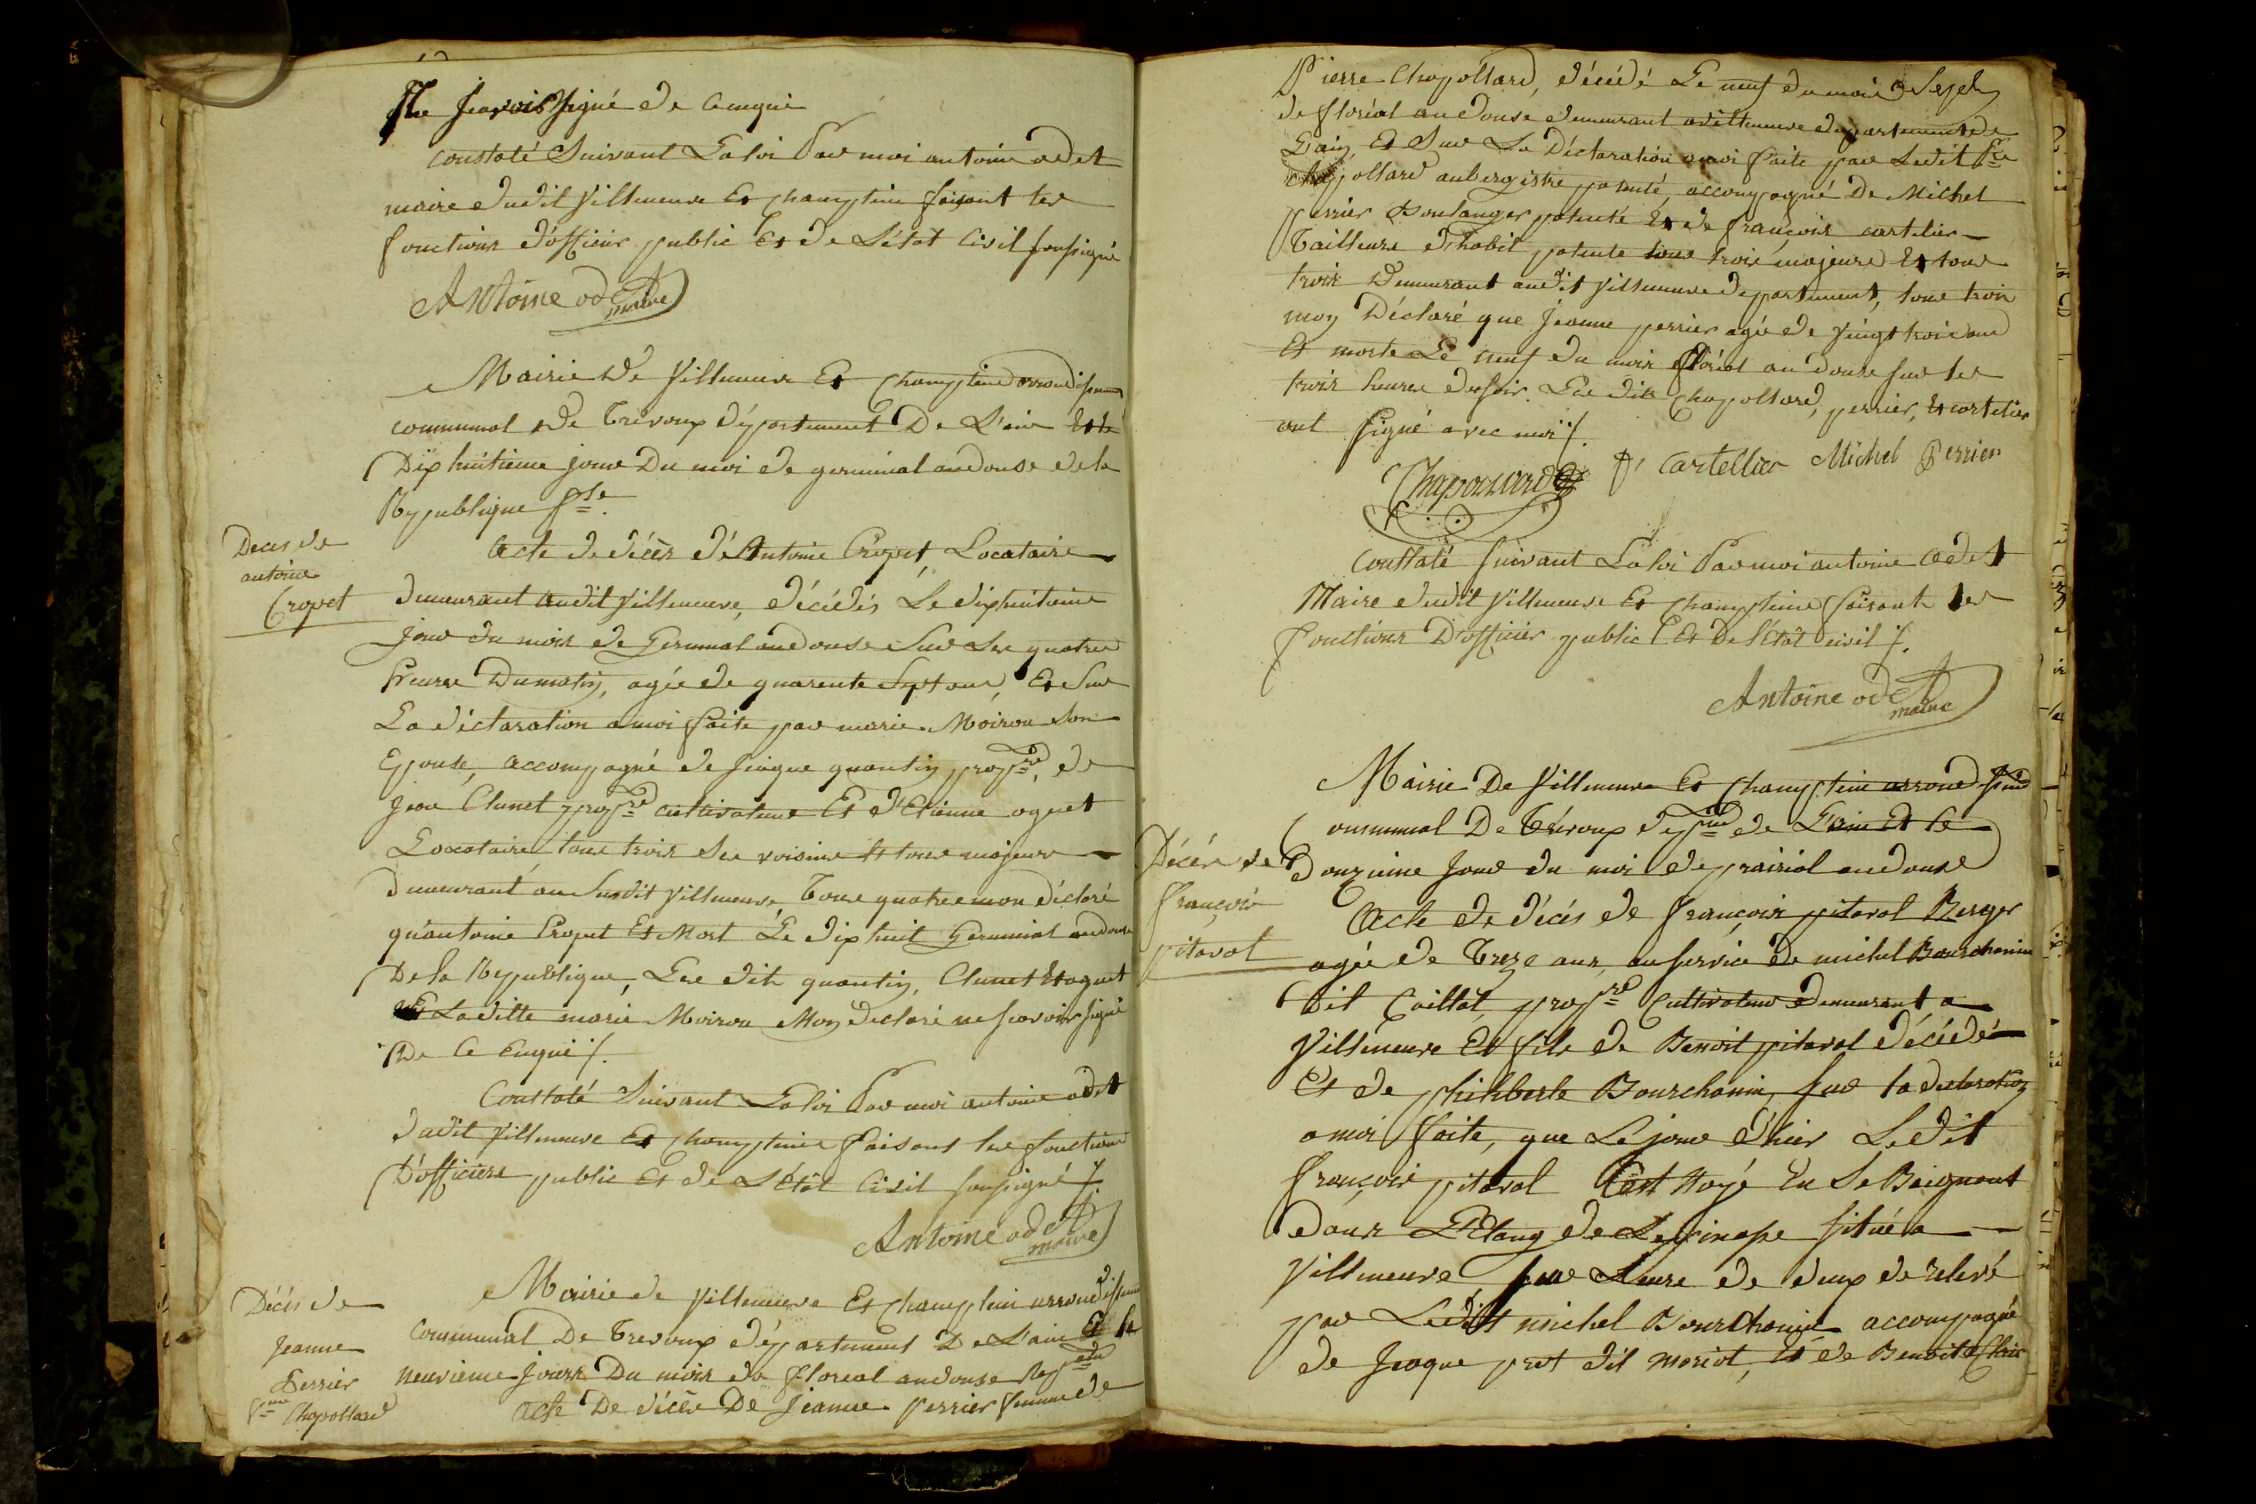 Ne scavoir signé de ce enquis
constaté Suivant La loi Par moi antoine odet
maire dudit villeneuve Et champtein faisant les
fonctions d'officier public Et de L'état Civil soussigné
Antoine odet
maire
Mairie de villeneuve Et champtein arrondissement
communal de Trevoux département De L'ain Et le
Dix huitieme jour Du moi de germinal an douse de la
Republique fse.
Deces de
antoine
Cropet
Acte de décès d'Antoine Cropet Locataire
demeurant audit villeneuve, décédés Le dix huitieme
jour du mois de Germinal an douse Sur Les quatres
heures Du matin, agée de quarente Sept ans, Et Sur
La déclaration a moi faite par marie Moiroux Son
Epouse, accompagné de jacque quantin propre, de
jean Clunet propre cultivateur Et d'Etienne oguet
Locataire, tous trois Ses voisins Et tous majeurs
demeurant au Susdit villeneuve Tous quatre mon déclaré
qu'antoine Cropet Et Mort Le dix huit Germinal an douse
De la Republique, Les dits quantin, Clunet Et oguet
Et La ditte marie Moiroux Mon declaré ne scavoir signé
De Ce Enquis /.
Constaté Suivant La loi Par moi antoine odet
dudit villeneuve Et champtein faisant les fonctions
D'officiers public Et de L'état Civil soussigné /.
Antoine odet
maire
Décès de
Jeanne
Perrier
fme Chapollard
Mairie de villeneuve Et champtein arrondissement
Communal De Trevoux département De L'ain Et le
neuvieme jours Du mois de floreal an douse
Acte De décès De jeanne perrier femme de
Pierre Chapollard, décédé Le neuf du mois
de floréal an douse demeurant a villeneuve departement de
L'ain, Et Sur La Déclaration a moi faite par Ledit Pre
chapollard aubergiste patenté, accompagné De Michel
perrier Boulanger patenté Et de françois cartelier
Tailleurs d'habit patente tous trois majeurs Et tous
trois Demeurant audit villeneuve departement, tous trois
mon Déclaré que jeanne perrier agée de vingt trois ans
Et morte Le neuf du mois floréal an douse sur les
trois heures du soir. Les dits chapollard, perrier, Et cartelier
ont signé avec moi /.
Chapollard
f. Cartellier Michel Perrier
Constaté Suivant La loi Par moi antoine Odet
Maire dudit villeneuve Et champteine faisant les
fonctions D'officier public Et De l'état civil /.
Antoine odet
maire
Mairie De villeneuve Et champtein arrondissement
Communal De Trévoux depment de L'ain Et le
Décès de
françois
pitaval
Douzieme jour du moi de prairial an douse
Acte de décès de françois pitaval Berger
agée de Treze ans, au service de michel Bourchanin
dit Caillat, propre Cultivateur demeurant a
villeneuve Et fils de Benoit pitaval décédé
Et de philiberte Bourchanin, sur la declaration
a moi faite, que Le jour d'hier Ledit
françois pitaval C'est Noyé En Se Baignant
dans L'Etang de Lepinasse situé a
villeneuve sur L'eure de deux de relevé
par Ledit michel Bourchanin accompagné
de Jacque pret dit moriot, Et de Benoit